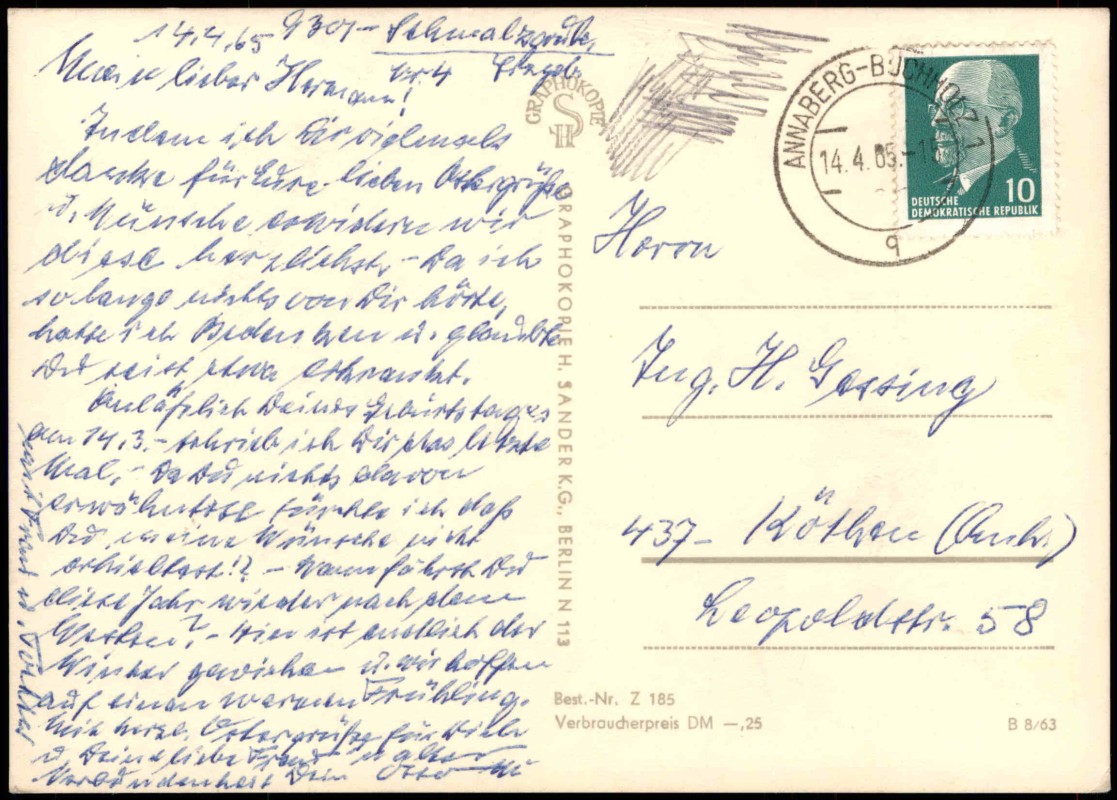 14.4.65 9301 - Schmalzgrube
Nr 4 Erzgeb.
Mein lieber Hermann!
Indem ich Dir vielmals
danke für Eure lieben Ostergrüße
u. Wünsche erwidern wir
diese herzlichst. - Da ich
so lange nichts von Dir hörte,
hatte ich Bedenken u. glaubte
Du seist etwa erkrankt.
Anläßlich Deines Geburtstages
am 14.3. - schrieb ich Dir das letzte
Mal. - Da Du nichts davon
erwähntest fürchte ich daß
Du meine Wünsche nicht
erhieltest!? - Wann fährst Du
diese Jahr wieder nach dem
Westen? - Hier ist endlich der
Winter gewichen u. wir hoffen
auf einen warmen Frühling.
Mit herzl. Ostergrüße für Dich
u. Deine liebe Frau in alter
Verbundenheit Dein Otto
Frau u. Tochter
GRAPHOKOPIE
H S
GRAPHOKOPIE H. SANDER K.G., BERLIN N 113
ANNABERG-BUCHHOLZ 1
14.4.65.-18
q
10
DEUTSCHE
DEMOKRATISCHE REPUBLIK
Herrn
Ing. H. Gessing
437- Köthen (Anh.)
Leopoldstr. 58
Best.-Nr. Z 185
Verbraucherpreis DM —,25
B 8/63